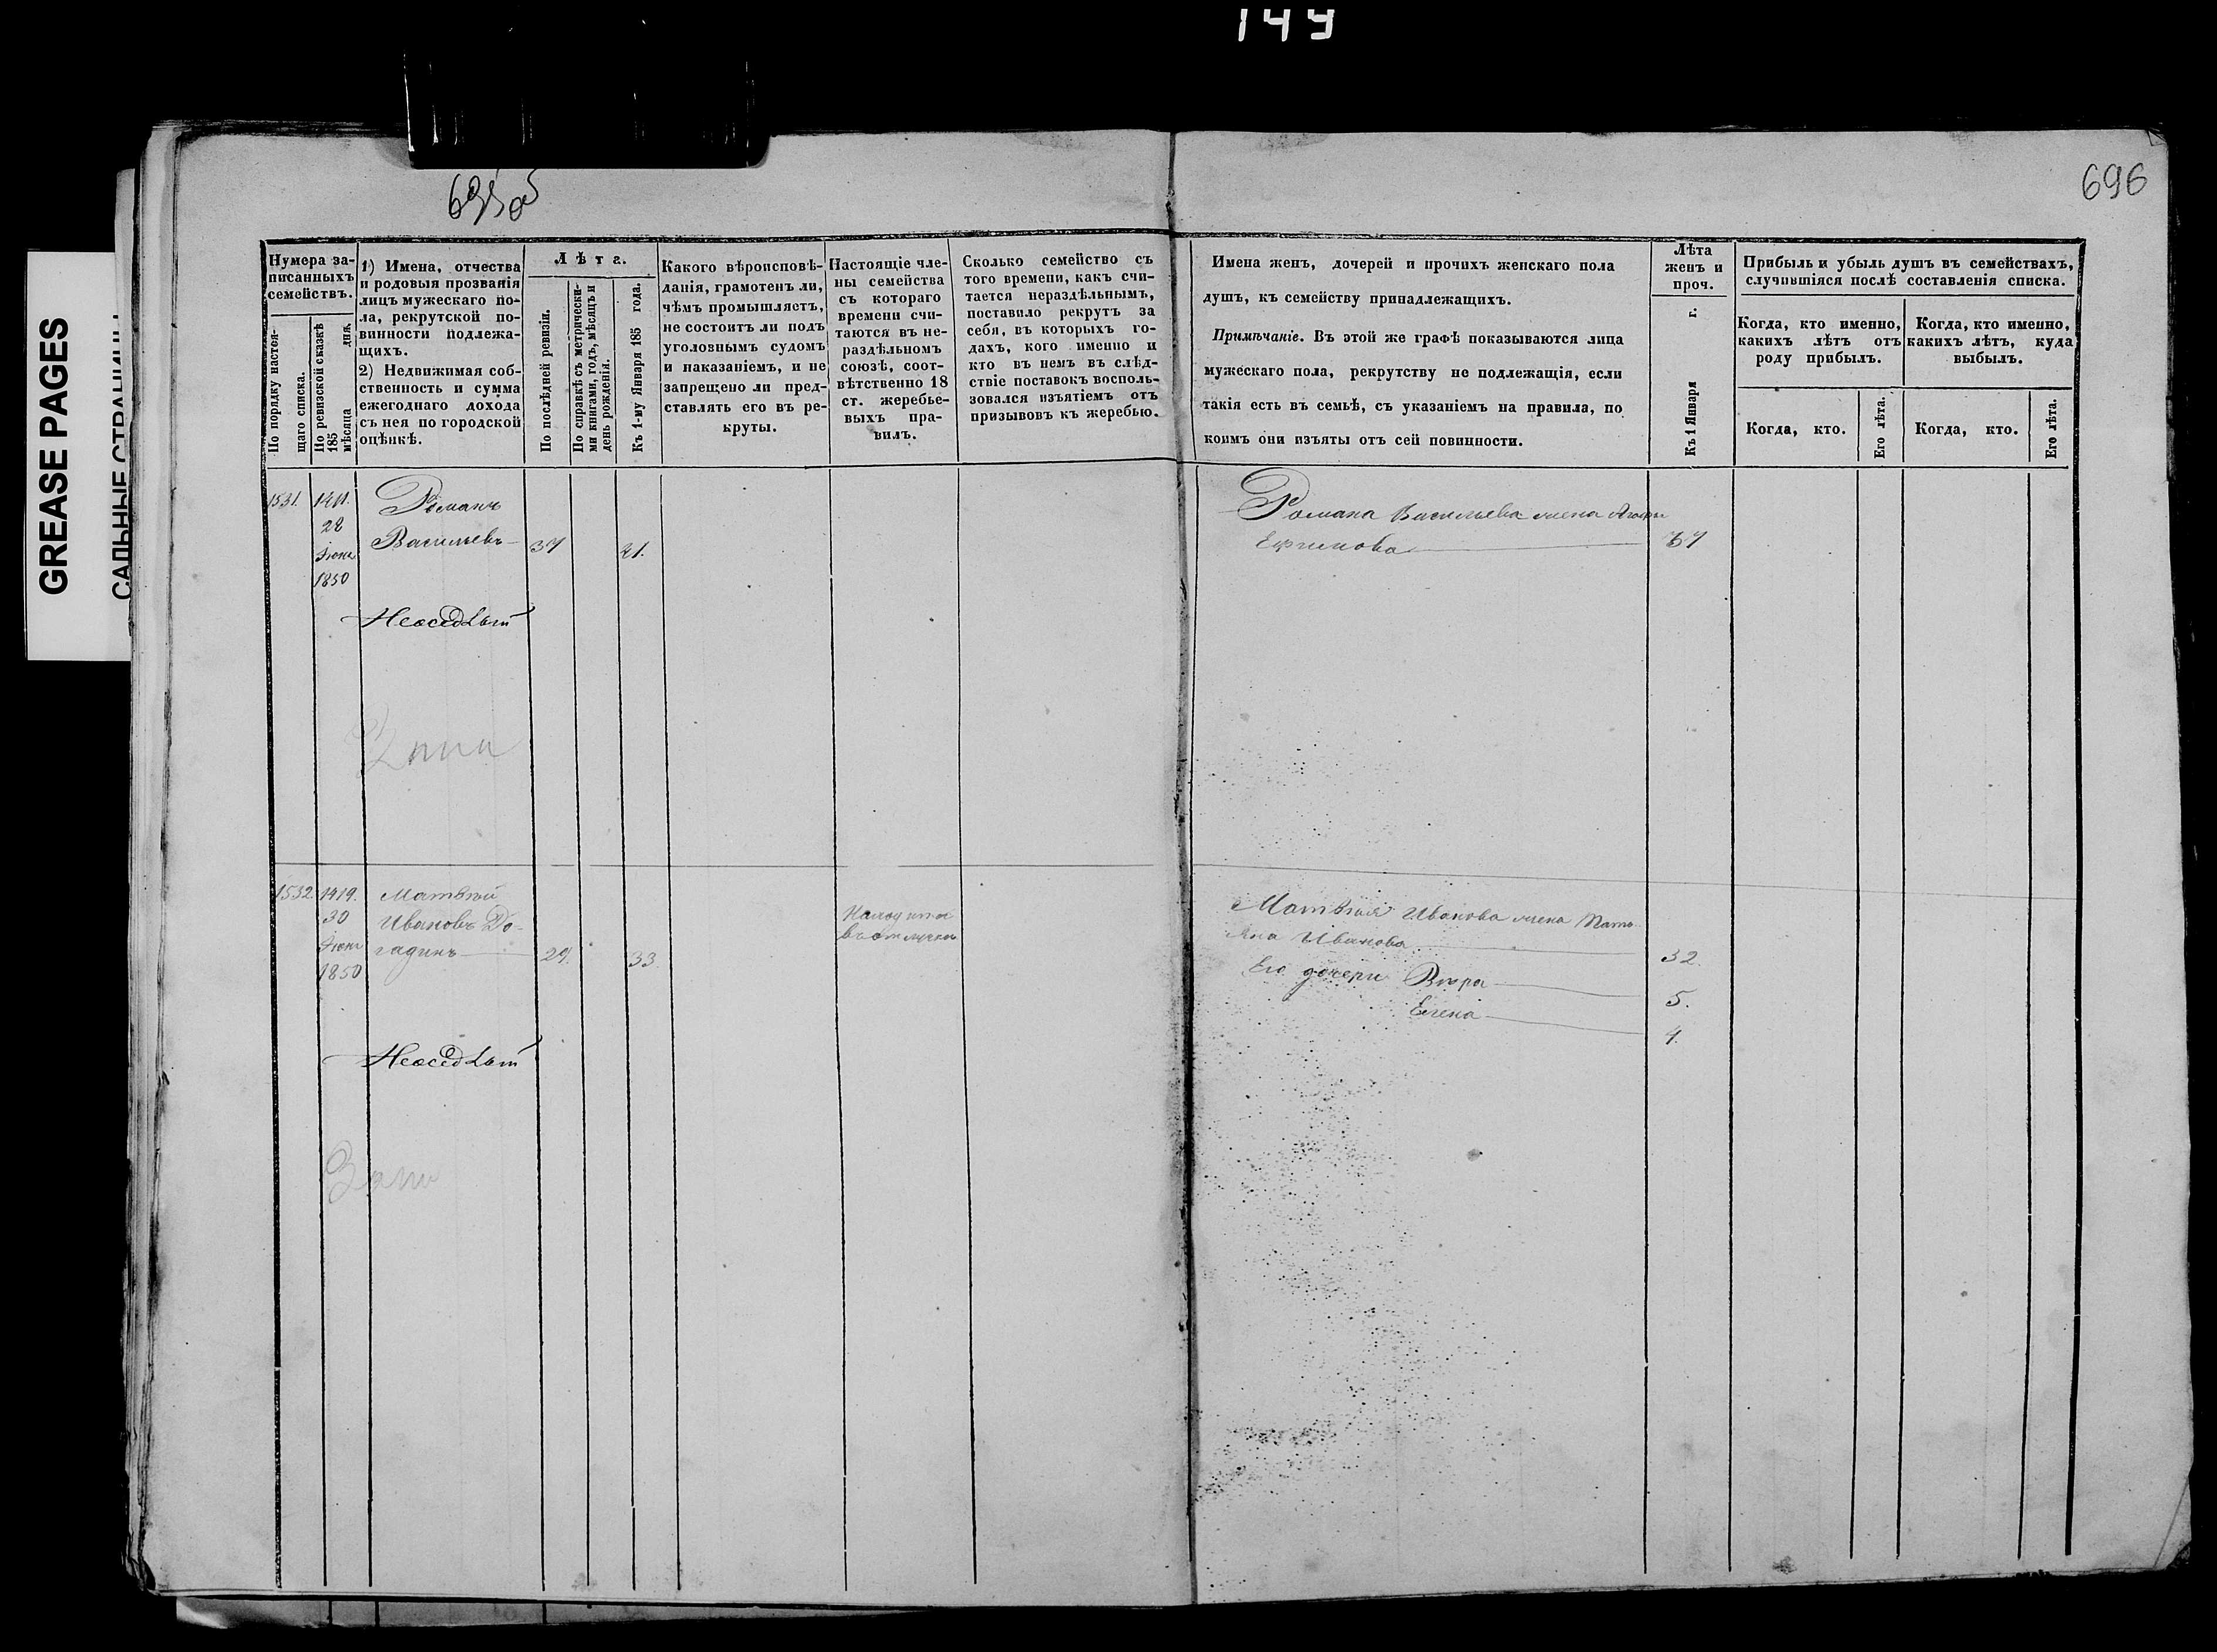 149
695 об
696
GREASE PAGES
САЛЬНЫЕ СТРАНИЦЫ
Нумера за-
писанныхъ
семействъ.
По порядку настоя-
щаго списка.
По ревизской сказкѣ
185
мѣсяца дня.
1) Имена, отчества
и родовыя прозванія
лицъ мужескаго по-
ла, рекрутской по-
винности подлежа-
щихъ.
2) Недвижимая соб-
ственность и сумма
ежегоднаго дохода
съ нея по городской
оцѣнкѣ.
Лѣта.
По послѣдней ревизіи.
По справкѣ съ метрически-
ми книгами, годъ, мѣсяцъ и
день рожденія.
Къ 1-му Января 185 года.
Какого вѣроисповѣ-
данія, грамотенъ ли,
чѣмъ промышляетъ,
не состоитъ ли подъ
уголовнымъ судомъ
и наказаніемъ, и не
запрещено ли пред-
ставлять его въ ре-
круты.
Настоящіе чле-
ны семейства
съ котораго
времени счи-
таются въ не-
раздѣльномъ
союзѣ, соот-
вѣтственно 18
ст. жеребье-
выхъ пра-
вилъ.
Сколько семейство съ
того времени, какъ счи-
тается нераздѣльнымъ,
поставило рекрутъ за
себя, въ которыхъ го-
дахъ, кого именно и
кто въ немъ въ слѣд-
ствіе поставокъ восполь-
зовался изъятіемъ отъ
призывовъ къ жеребью.
Имена женъ, дочерей и прочихъ женскаго пола
душъ, къ семейству принадлежащихъ.
Примѣчаніе. Въ этой же графѣ показываются лица
мужескаго пола, рекрутству не подлежащія, если
такія есть въ семьѣ, съ указаніемъ на правила, по
коимъ они изъяты отъ сей повинности.
Лѣта
женъ и
проч.
Къ 1 Января г.
Прибыль и убыль душъ въ семействахъ,
случившіяся послѣ составленія списка.
Когда, кто именно,
какихъ лѣтъ отъ
роду прибылъ.
Когда, кто именно,
какихъ лѣтъ, куда
выбылъ.
Когда, кто.
Его лѣта.
Когда, кто.
Его лѣта.
1531.
28
Іюня
1850
Романъ
Васильевъ
37
Неоседлый
Романа Васильева жена
Ефимова
1532
1419.
30
Іюня
1850
Матвѣй
Ивановъ До-
гадинъ
29.
33
Неоседлый
Матвѣя Иванова жена Тать-
яна Иванова
32.
Его дочери Вѣра
5.
Елена
4.